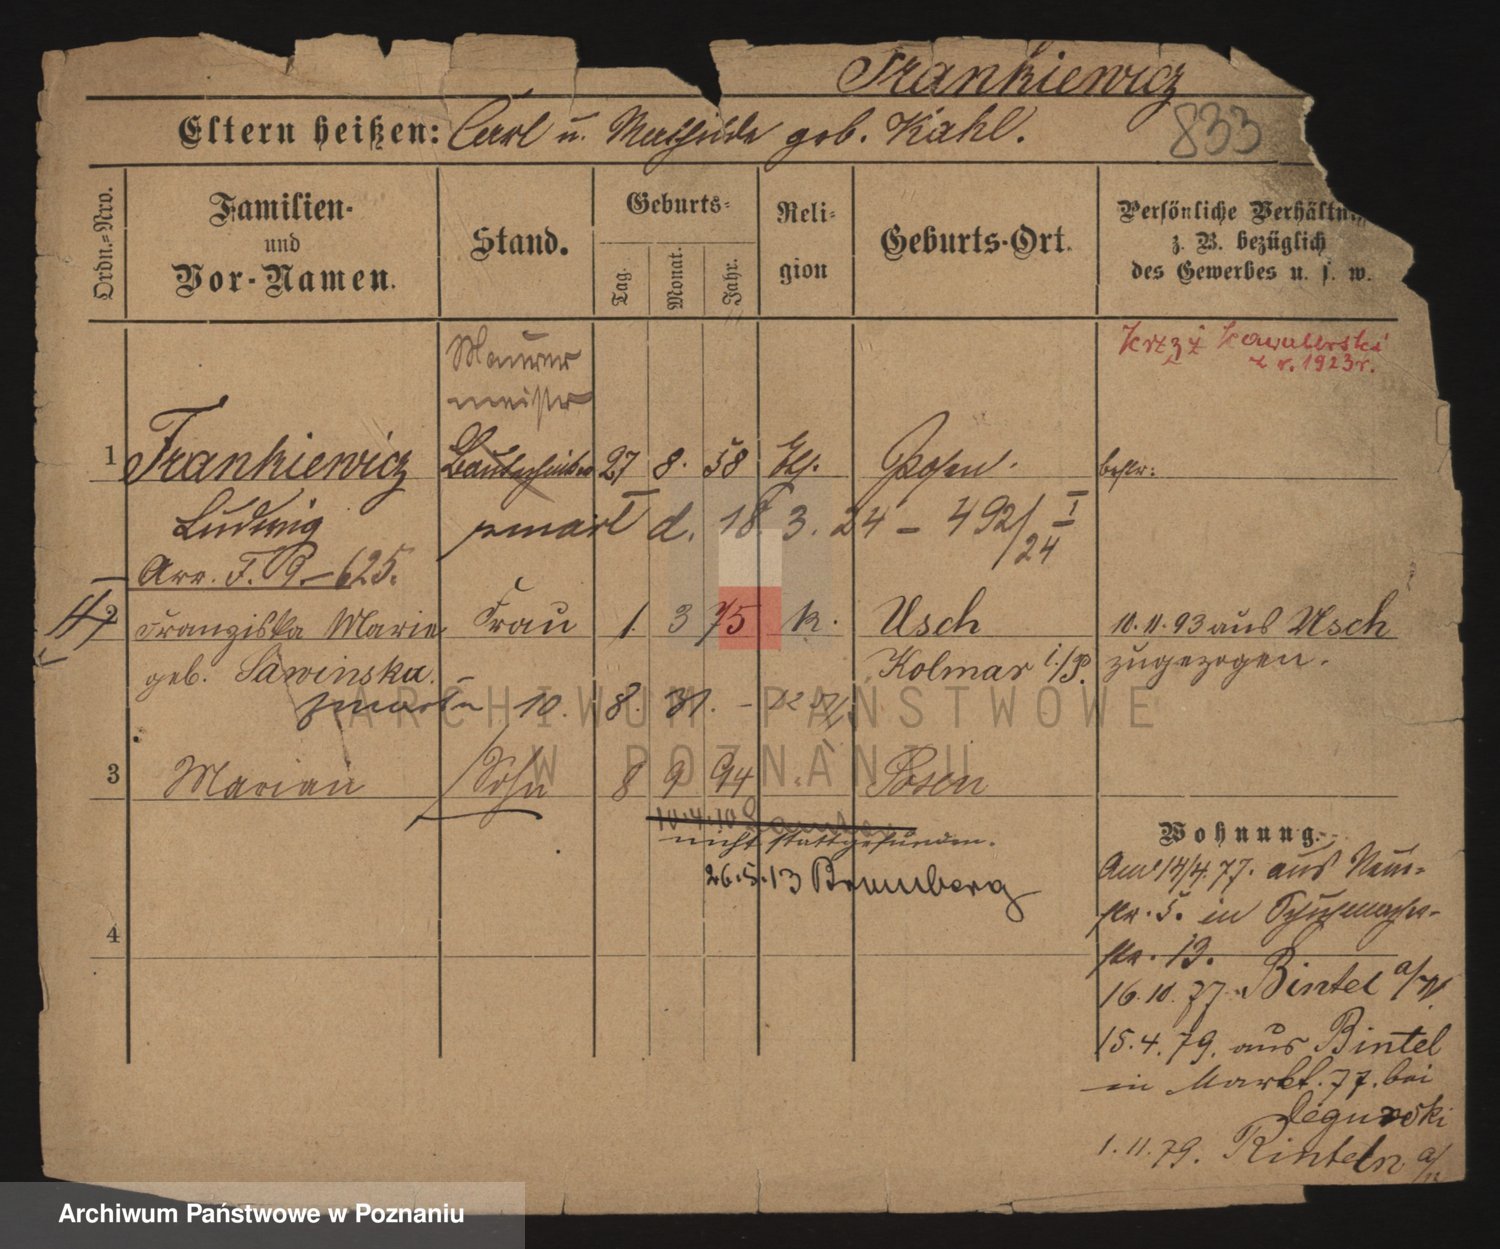 Frankiewicz
Eltern heißen: Carl u. Mathilde geb. Kahl.
833
Ordn.-Nro.
Familien-
und
Vor-Namen.
Stand.
Geburts-
Tag.
Monat.
Jahr.
Reli-
gion
Geburts-Ort.
Persönliche Verhältn
z. B. bezüglich
des Gewerbes u. s. w.
Krzyż Kawalerski
z r. 1923 r.
Maurer
meister
1 Frankiewicz 27 8. 58 Posen.
Ludwig
zmarł d. 18. 3. 24 - 492/I
/24
Arr. F. P. - 625.
2 Franziska Marie Frau 1. 3 75 k. Usch 10.11.93 aus Usch
geb. Sawinska. Kolmar i./P. zugezogen.
zmarła 10. 8. 31.
3 Marian Sohn 8 9 94 Posen
10.4.10
nicht stattgefunden.
26.5.13 Bromberg
4
Wohnung.
Am 14/4.77. aus Neue-
str. 5. in Schuhmacher-
str. 19.
16.10.77 Bintel a/W.
15.4.79. aus Bintel
in Markt. 77. bei
1.11.79. Rinteln a/
ARCHIWUM PAŃSTWOWE
W POZNANIU
Archiwum Państwowe w Poznaniu